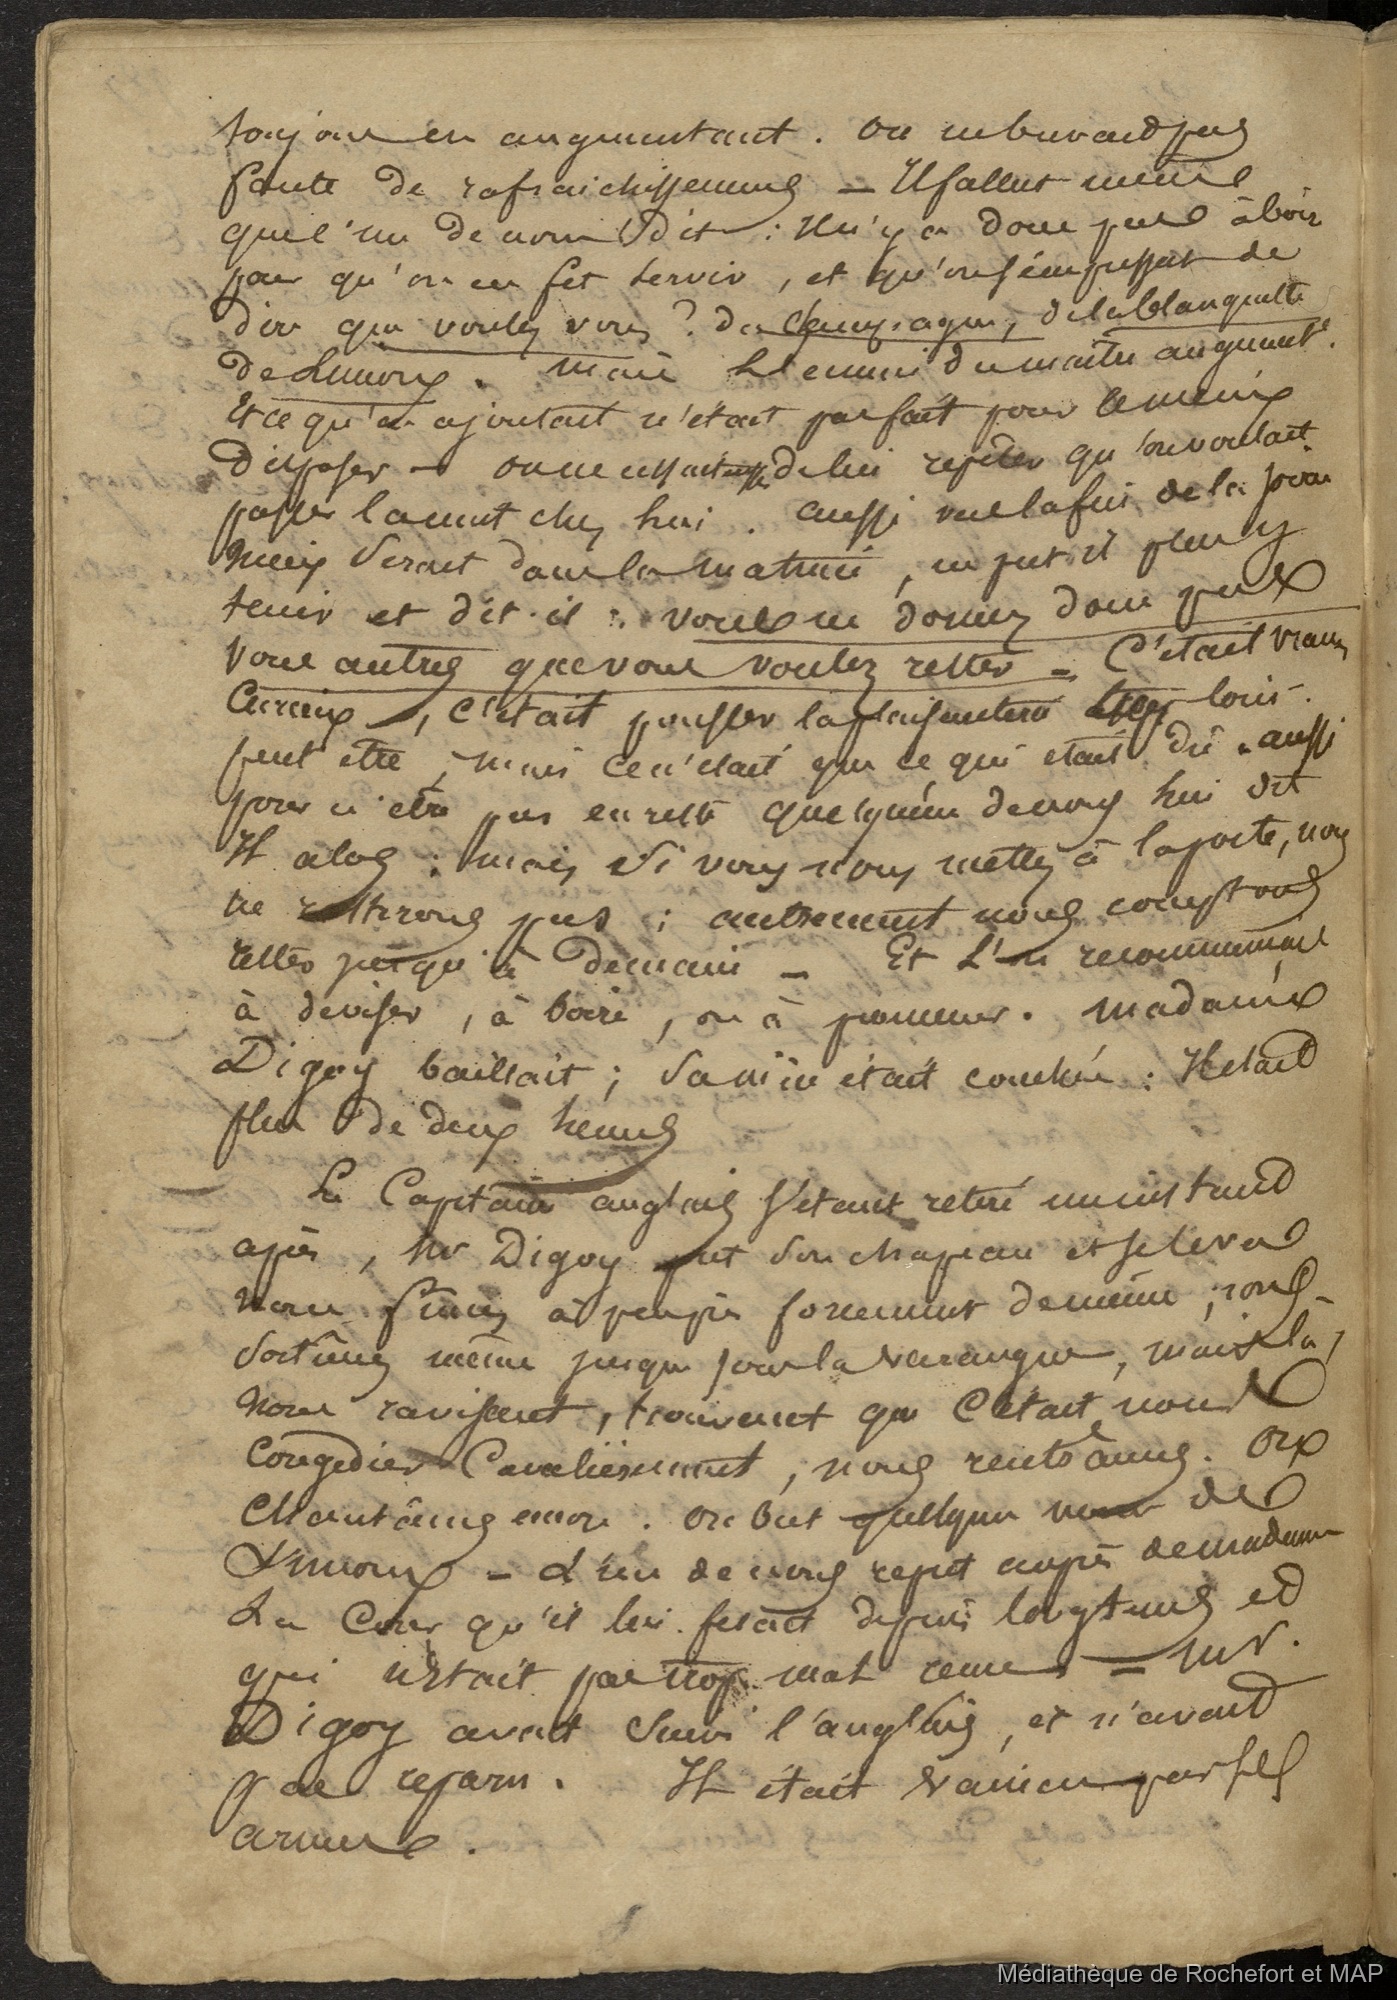 toujours en augmentant. on ne buvait pas
faute de rafraichissemens – Il fallut même
que l'un de nous dit : Il n'y a donc pas à boir
pour qu'on en fet servir, et qu'on s'empressat de
dire que voulez vous ? du Champagne, de la blanquette
de Limoux. mais l'ennui du maitre augmenta.
Et ce qu'on ajoutait n'était pas fait pour le mieux
disposer – on ne cessait de lui repeter qu'on voulait
passer la nuit chez lui. aussi vers la fin de la
mieux serait dans la matinée, ne put il plus y
tenir et dit-il : vous ne dormez donc pas
vous autres que vous voulez rester – C'était vraim.
curieux, c'était pousser la plaisanterie loin
peut etre, mais ce n'était que ce qui était dû. aussi
pour n'etre pas en reste quelqu'un de nous lui dit
Il alors : mais si vous nous mettez à la porte, nous
ne resterons pas ; autrement nous comptons
rester jusqu'à demain – Et l'on recommença
à deviser, à boire, ou à promener. madame
Digoy baillait ; sa nièce était couchée : Il etait
plus de deux heures
Le Capitaine anglais s'etant retiré un instant
après, Mr Digoy prit son chapeau et se leva
nous fimes à peu près forcement de même, nous
sortîmes même jusques sous la varangue, mais là,
nous ravisant, trouvant que c'était nous
congedier cavalièrement, nous rentrâmes. On
chantâmes encore. on but quelques verres de
Limoux – l'un de nous reprit auprès de madame
La Cour qu'il lui fesait depuis longtems et
qui n'était pas trop mal reçue – Mr.
Digoy avait suivi l'anglais, et n'avait
pas reparu. Il était vaincu par ses
armes.
Médiathèque de Rochefort et MAP